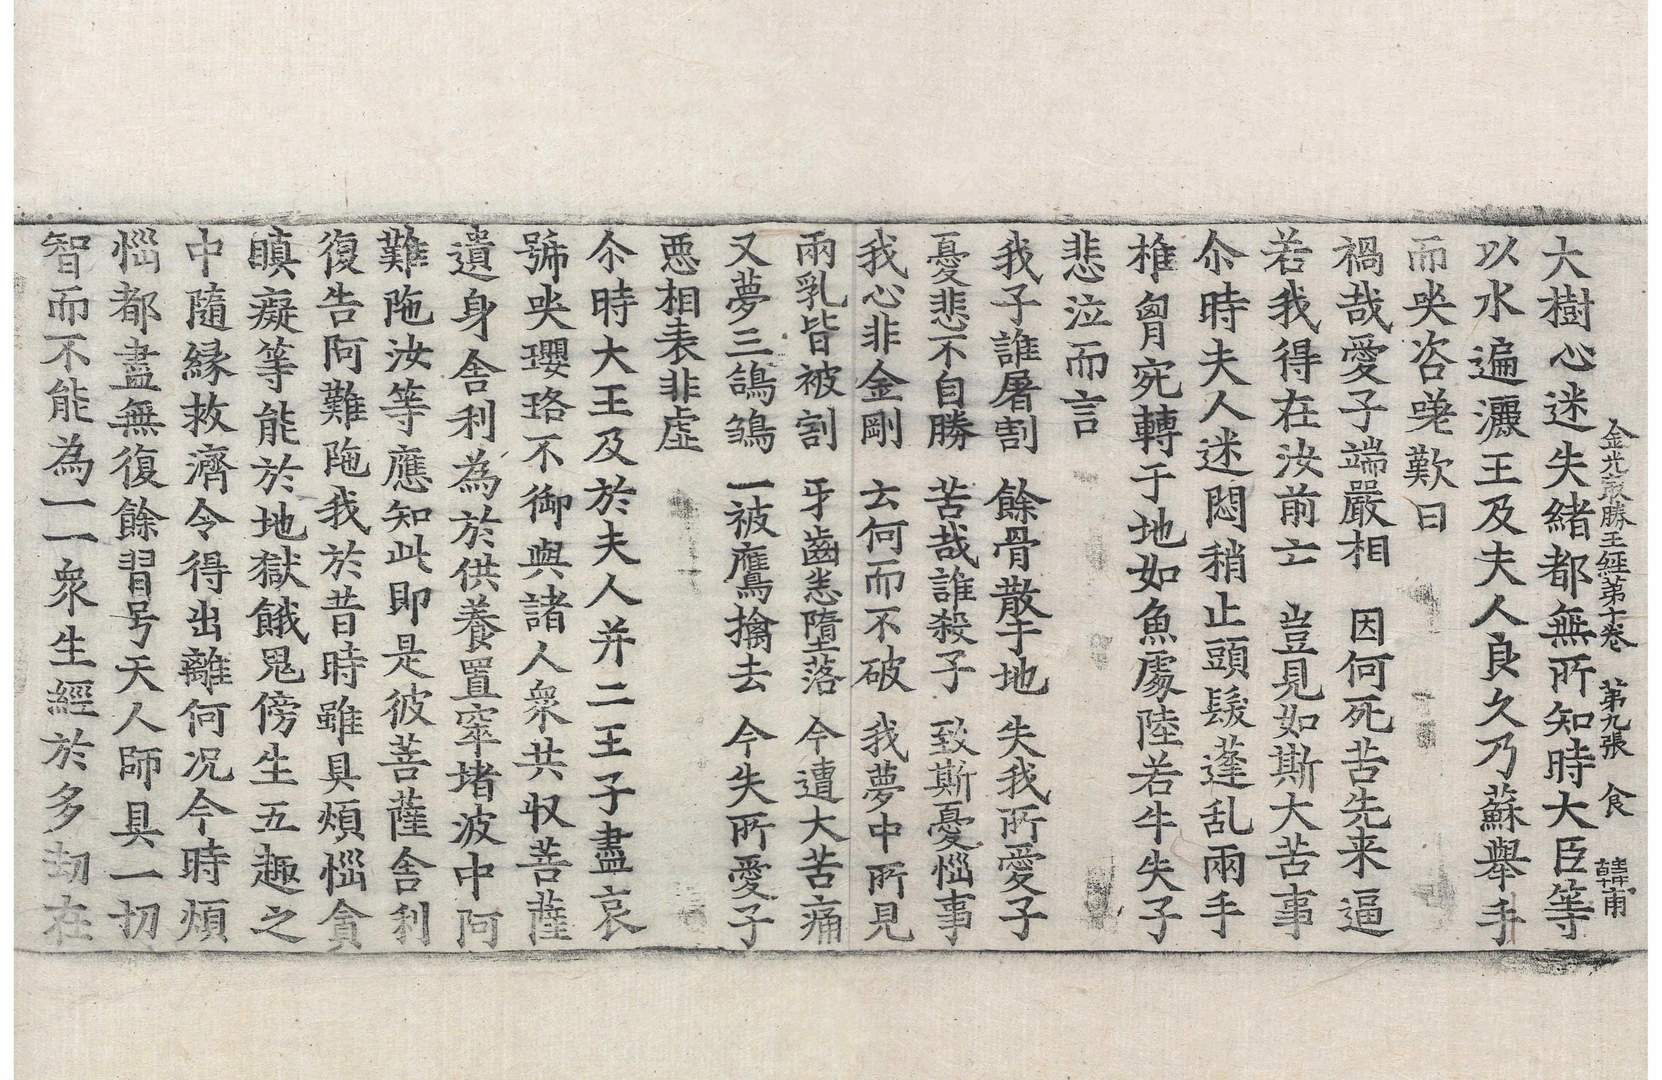 金光最勝王經第十卷 第九張 食 韓甫
大樹心迷失緒都無所知時大臣等
以水遍灑王及夫人良久乃蘇舉手
而哭咨嗟歎曰
禍哉愛子端嚴相 因何死苦先来逼
若我得在汝前亡 豈見如斯大苦事
尒時夫人迷悶稍止頭髮蓬乱兩手
椎胷宛轉于地如魚處陸若牛失子
悲泣而言
我子誰屠割 餘骨散于地 失我所愛子
憂悲不自勝 苦哉誰殺子 致斯憂惱事
我心非金剛 云何而不破 我夢中所見
兩乳皆被割 牙齒悉墮落 今遭大苦痛
又夢三鴿鶵 一被鷹擒去 今失所愛子
惡相表非虛
尒時大王及於夫人并二王子盡哀
號哭瓔珞不御與諸人衆共収菩薩
遺身舎利為於供養置窣堵波中阿
難陁汝等應知此即是彼菩薩舎利
復告阿難陁我於昔時雖具煩惱貪
瞋癡等能於地獄餓鬼傍生五趣之
中隨縁救濟令得出離何况今時煩
惱都盡無復餘習号天人師具一切
智而不能為一一衆生經於多劫在